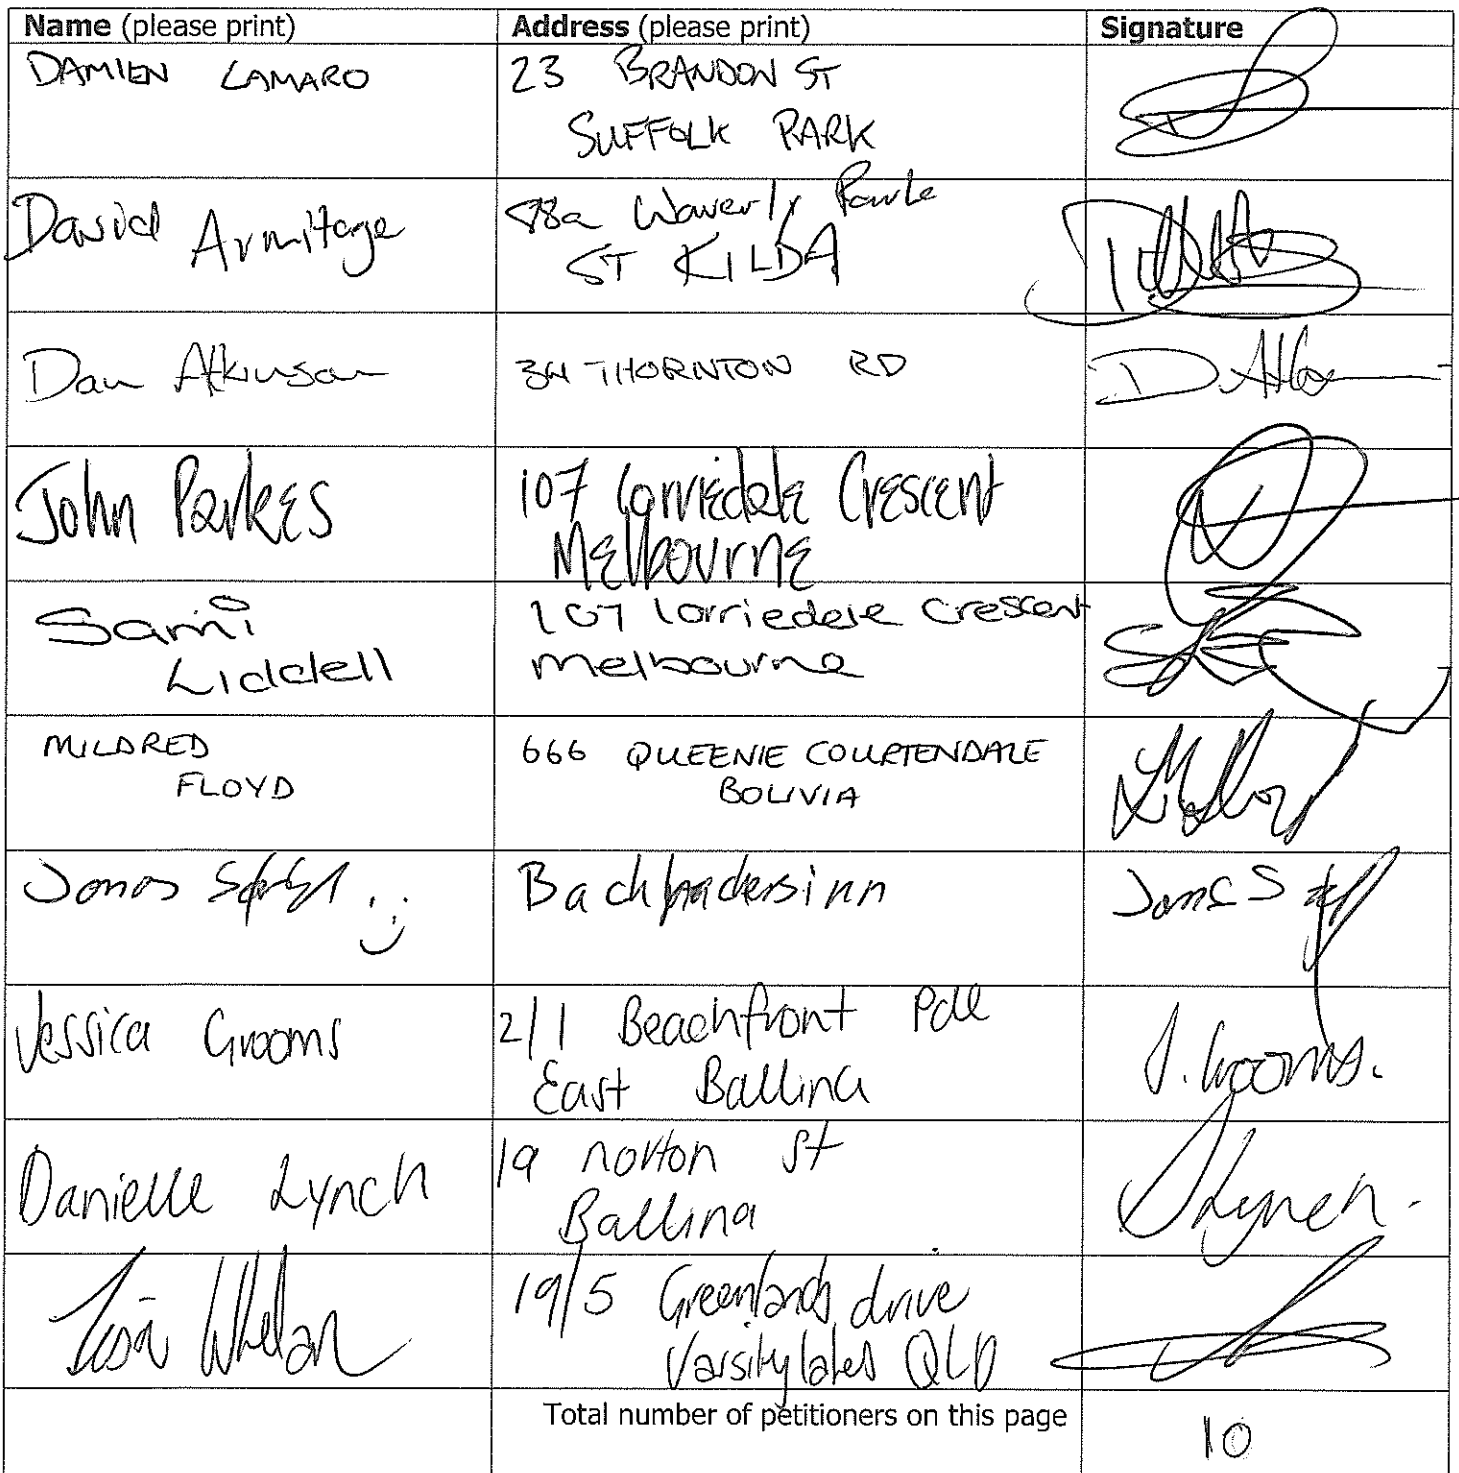 Name (please print) Address (please print) Signature
DAMIEN LAMARO 23 BRANDON ST
SUFFOLK PARK
David Armitage 88a Waverly Parke
ST KILDA
Dan Atkinson 34 THORNTON RD
John Parkes 107 Corriedale Crescent
Melbourne
Sami 107 Corriedale Crescent
Liddell Melbourne
MILDRED 666 QUEENIE COURTENDALE
FLOYD BOLIVIA
Jonas Bachhadersinn Jonas
Jessica Grooms 2/1 Beachfront Pde J. Grooms.
East Ballina
Danielle Lynch 19 norton St DLynch.
Ballina
Whelan 19/5 Greenlands drive
Varsity lakes QLD
Total number of petitioners on this page 10